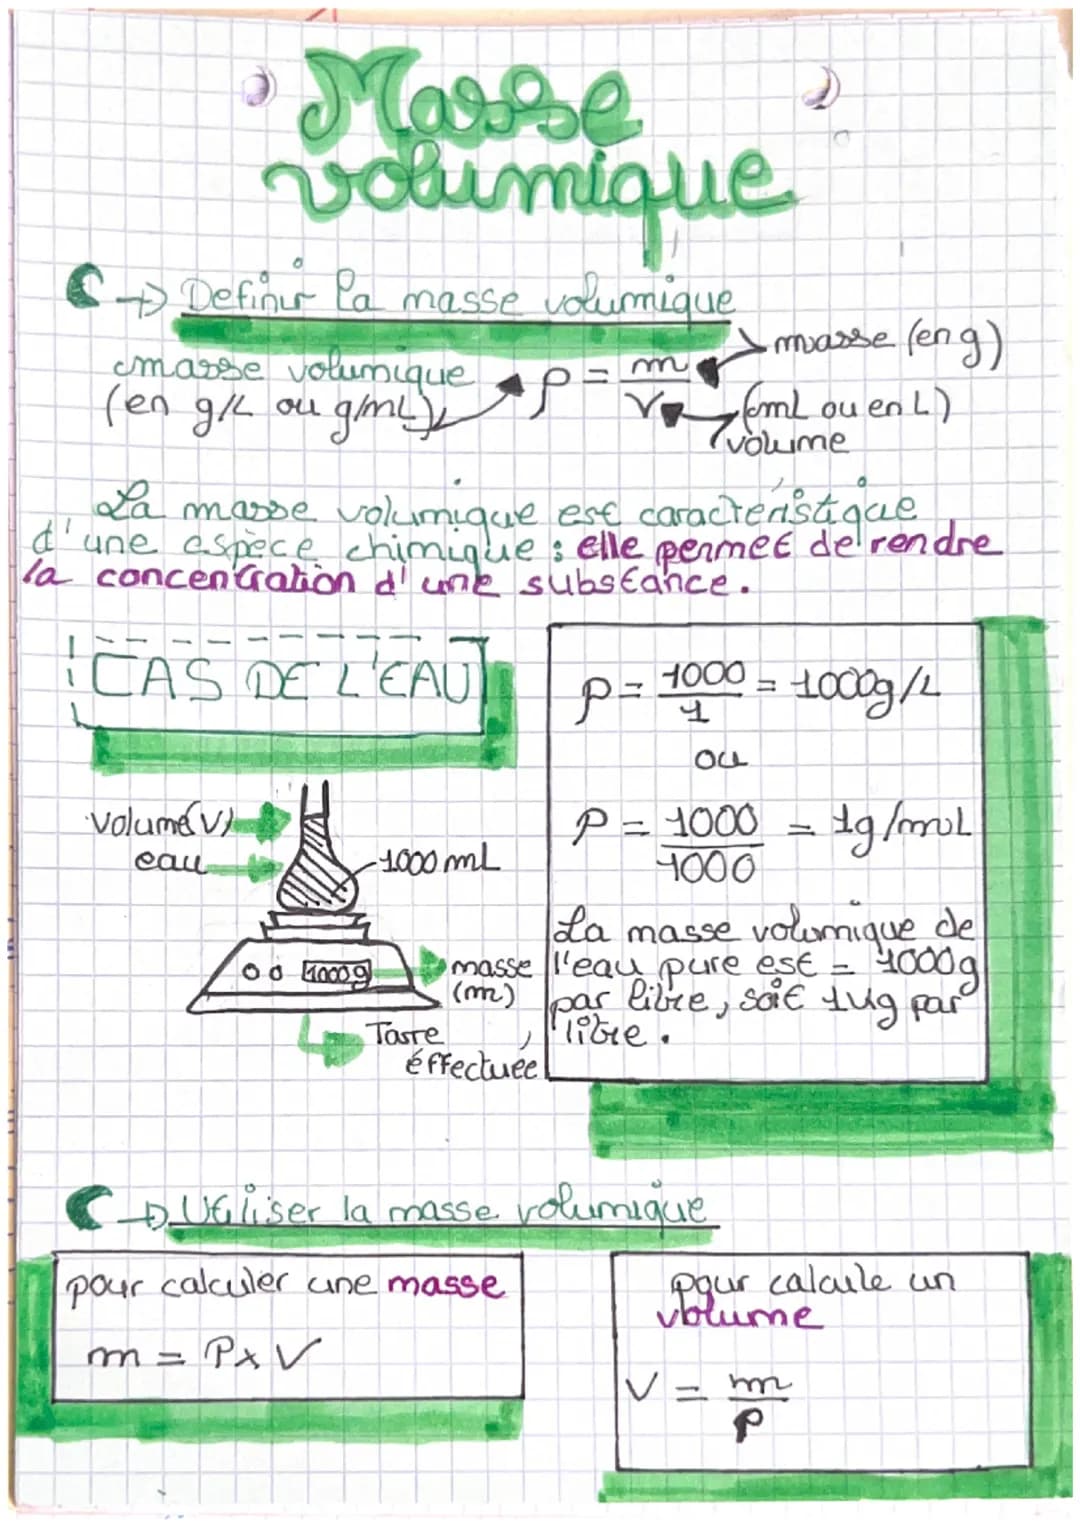 Masse
volumique
→ Definir la masse volumique
masse volumique
(en g/L ou g/mL)
ρ = m/V
masse (en g)
(mL ou en L)
volume
La masse volumique est caractéristique
d'une espèce chimique : elle permet de rendre
la concentration d'une substance.
CAS DE L'EAU
volume(V)
eau
1000 mL
1000g
masse
(m)
Tarre
éffectuée
ρ = 1000/1 = 1000g/L
ou
ρ = 1000/1000 = 1g/mL
La masse volumique de
l'eau pure est = 1000g
par litre, soit 1kg par
litre.
→ Utiliser la masse volumique
pour calculer une masse
m = ρ x V
pour calcule un
volume
V = m/ρ